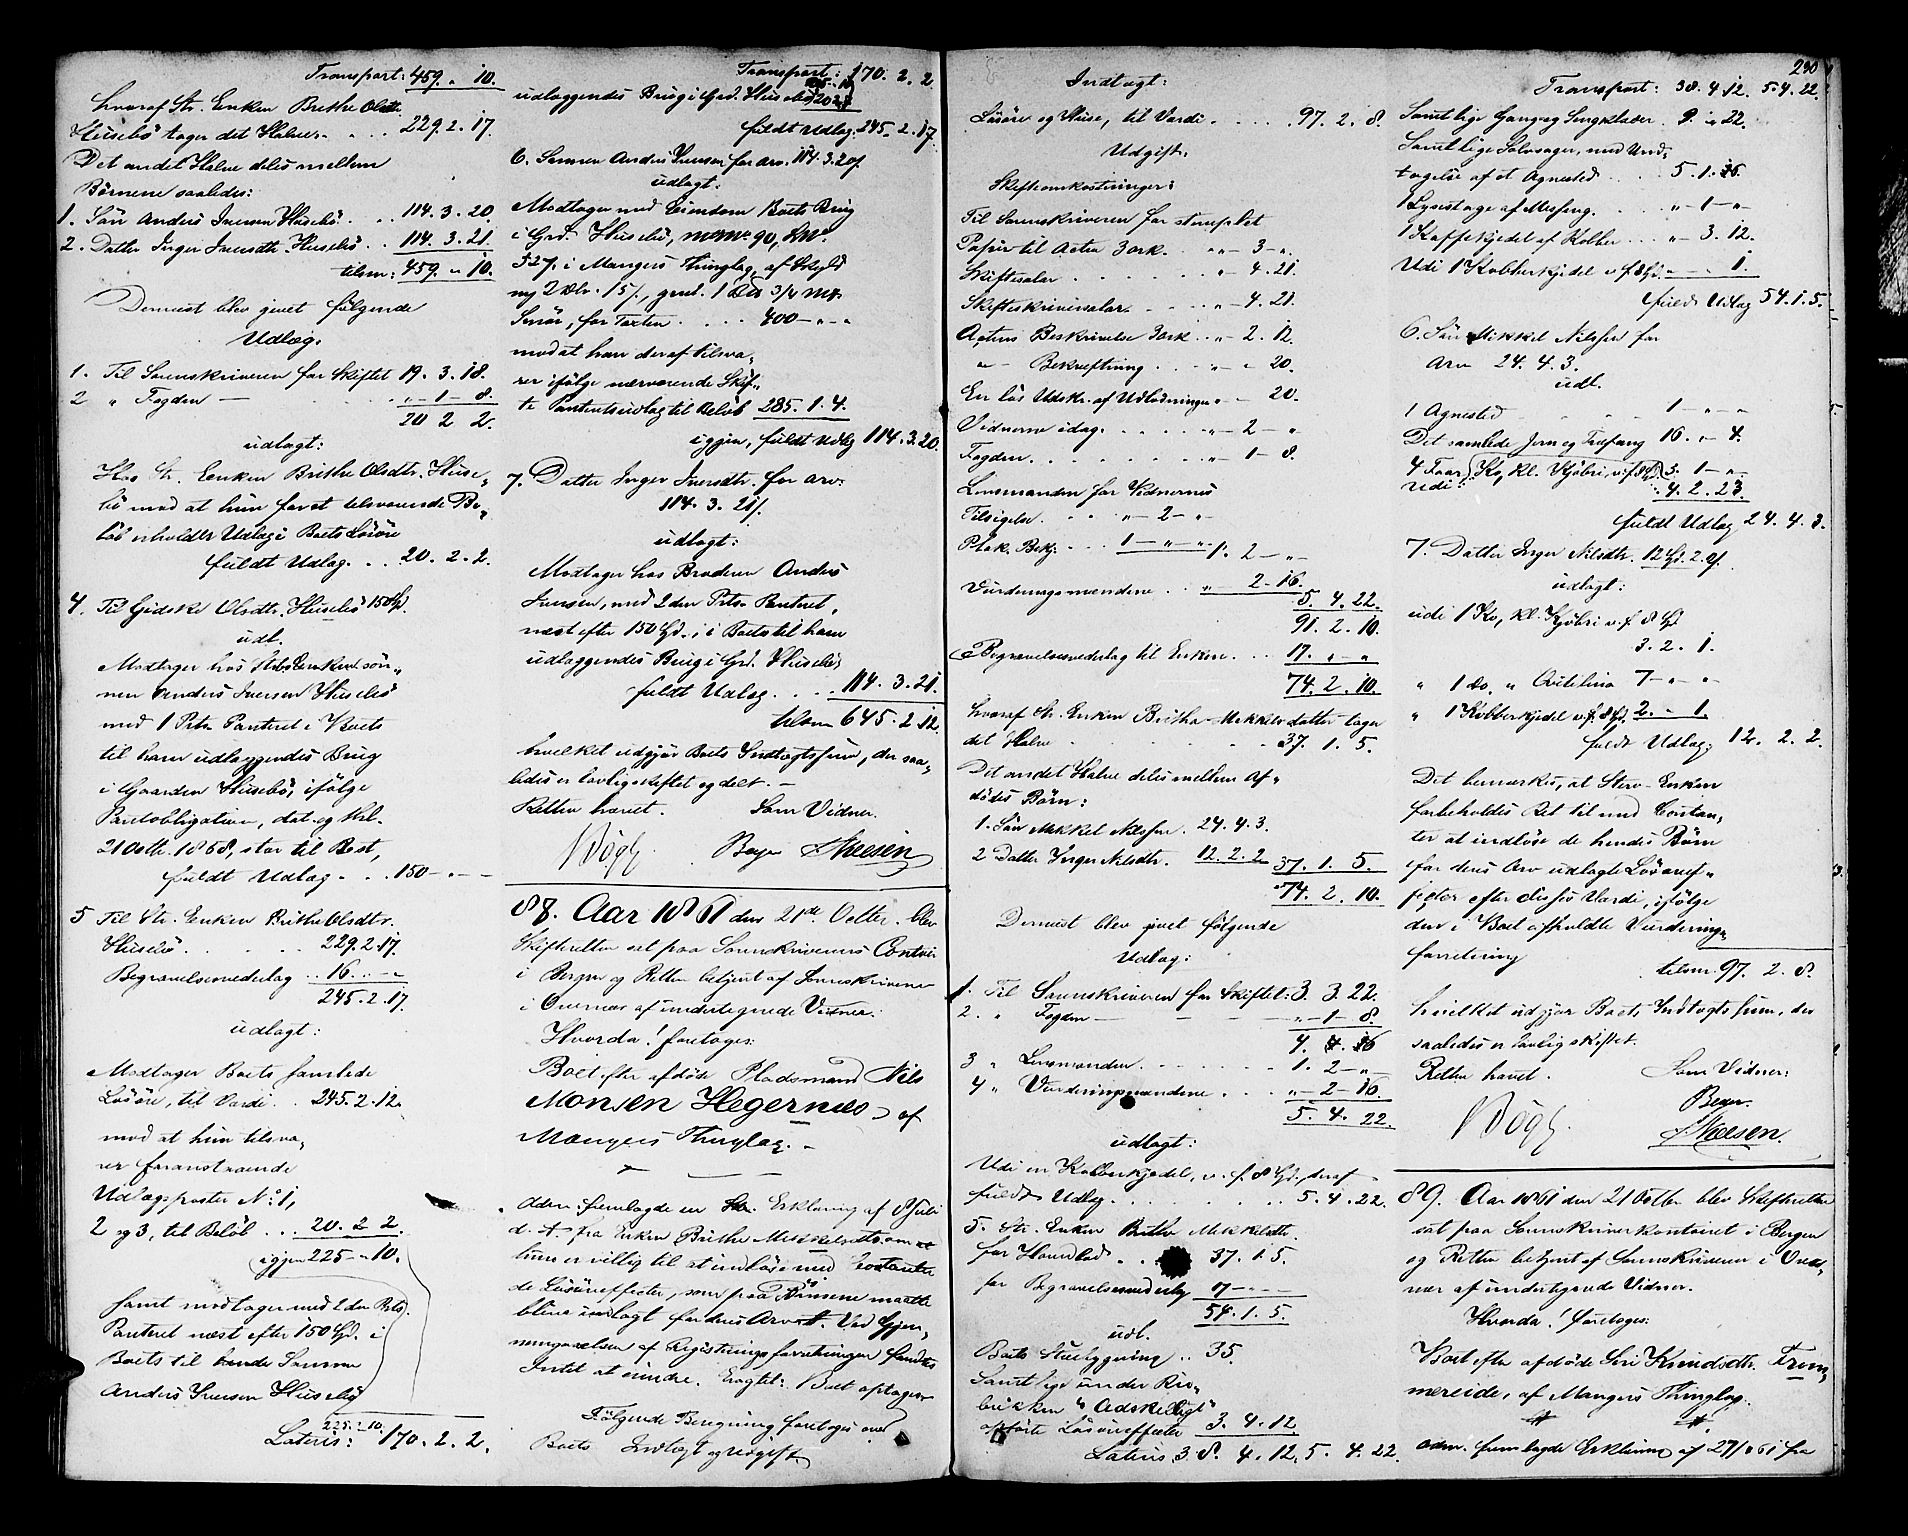 Transport: 459. „ 10.
hvoraf St. Enken Brithe Olsdtr.
Husebö tager det Halve. . . . 229. 2. 17.
Det andet Halve deles mellem
Börnene saaledes:
1. Sön Anders Iversen Husebö. . . 114. 3. 20.
2. Datter Inger Iversdtr. Husebö. . 114. 3. 21.
tilsm: 459. „ 10.
Dernæst blev givet fölgende
Udlæg.
1. Til Sorenskriveren for Skiftet 19. 3. 18.
2 „ Fogden — „ — 1 — 8.
20 2 2.
udlagt:
Hos St. Enken Brithe Olsdtr. Huse-
bö mod at hun for et tilsvarende Be-
löb erholdte Udlæg i Boets Lösöre
fuldt Udlæg. . . . 20. 2. 2.
4. Til Gidske Olsdtr. Husebö 150 Spd.
udl.
Modtager hos Sterbenkens Sön-
nen Anders Iversen Husebö
med 1 Prts. Panteret i Boets
til ham udlæggendes Brug
i Gaarden Husebö, ifölge
Pantobligation, dat. og thl.
21 Octb. 1868, stor til Rest,
fuldt Udlæg . . . 150 — „ —
5 Til St. Enken Brithe Olsdtr.
Husebö . . . . . 229. 2. 17.
Begravelsesvederlag . . 16. „ — „
245. 2. 17.
udlagt:
Modtager Boets samlede
Lösöre, til Værdi . . 245. 2. 12.
mod at hun tilsva-
rer foranstaaende
Udlægsposter No. 1,
2 og 3, til Belöb . . . 20. 2 2.
igjen 225 — „ 10.
samt modtager med 2den Prts.
Panteret næst efter 150 Spd. i
Boets til hendes Sönnen
Anders Iversen Husebö
225. „ 10.
Lateris: 170. 2. 2.
Transport: 170. 2. 2
udlæggendes Brug i Grd. Husebö
fuldt Udlæg 245. 2. 17.
6. Sönnen Anders Iversen for arv: 114. 3. 20.
udlagt:
Modtager med Eiendom Boets Brug
i Grd. Husebö, mr. no. 90, Ln.
527. i Mangers Thinglag, af Skyld
ny 2 Dlr. 1 5/., gml. 1 3/4 Mk.
Smör, for Taxten . . . . 400 — „ — „
mod at han deraf tilsva-
rer ifölge nærværende Skif-
te Panteretsudlæg til Belöb 285. 1. 4.
igjen, fuldt Udlæg 114. 3. 20.
7. Datter Inger Iversdtr. for arv:
114. 3. 21.
udlagt:
Modtager hos Broderen Anders
Iversen, med 2den Prts. Panteret,
næst efter 150 Spd. i Boets til ham
udlæggendes Brug i Grd. Husebö
fuldt Udlæg. . . . 114. 3. 21.
tilsm 645. 2. 12.
hvilket udgjör Boets Indtægtssum, der saa-
ledes er lovlig skiftet og delt. —
Retten hævet. Som Vidner.
Bögh. Beyer SNielsen
88. Aar 1861 den 21de Octbr. blev
Skifteretten sat paa Sorenskriverens Contoir
i Bergen og Retten betjent af Sorenskriveren
i Overvær af undertegnede Vidner.
Hvorda! foretoges:
Boet efter afdöde Pladsmand Nils
Monsen Hegernæs af
Mangers Thinglag. —
Adm. fremlagde en Erklæring af 8 Juli
d. A. fra Enken Brithe Mikkelsdtr. om at
hun er villig til at indlöse med Contanter
de Lösöreffecter, som paa Börnene maatte
blive udlagt for deres Arv. Ved Gjen-
nemgaaelsen af Registreringsforretningen fandtes
Intet at erindre. Eragtet: Boet optages
Fölgende Beregning foretoges over
Boets Indtægt og Udgift
230
Indtægt:
Lösöre og Huse, til Værdi . . . . . 97. 2. 8.
Udgift:
Skifteomkostninger:
Til Sorenskriveren for stemplet
Papir til Acten 3 ark. . . „ „ — 3 — „
Skiftesalar . . . . . . „ — 4. 21.
Skifteskriversalar. . . . . „ — 4. 21.
Actens Beskrivelse 3 ark . . „ — 2. 12.
„ — Bekræftning . . . „ — „ 20.
En lös Udskr. af Udlodningen „ — 20.
Vidnerne idag. . . . . „ — 2 — „
Fogden. . . . . . . „ — 1 — 8.
Lensmanden for Vidnernes
Tilsigelse. . . . „ — 2 — „
Plak. Bekj. . . . 1 — „ — „ 1. 2 — „
Vurderingsmændene . . „ 2 — 16.
5. 4. 22.
91. 2. 10.
Begravelsesvederlag til Enken . . 17. „ — „
74. 2. 10.
hvoraf St. Enken Brithe Mikkelsdatter tager
det Halve . . . . . . . 37. 1. 5.
Det andet Halve deles mellem Af-
dödes Börn:
1. Sön Mikkel Nilssen. 24. 4. 3.
2 Datter Inger Nilsdtr. 12. 2. 2 37. 1. 5.
74. 2. 10.
Dernæst blev givet fölgende
Udlæg:
1. Til Sorenskriveren for Skiftet: 3. 3. 22.
2. „ Fogden — — — — „ — 1 — 8.
4. „ 16
3 „ Lensmanden. . . . . . 1. 2 — „
4 „ Vurderingsmændene . . . „ — 2 — 16.
5. 4. 22.
udlagt:
Udi en Kobberkjedel, v. f. 8 Spd. deraf
fuldt Udlæg. . . . . . . 5. 4. 22.
5. St. Enken Brithe Mikkelsdtr.
for Hovedlod . . 37. 1. 5.
for Begravelsesvederlag 17 — „ — „
54. 1. 5.
udl.
Boets Husebygning . . 35.
Samtlige under Ru-
brikken „Adskilligt"
opförte Lösöreffecter 3. 4. 12.
Lateris 38. 4. 12. 5. 4. 22.
Transport: 38. 4. 12. 5. 4. 22.
Samtlige Gang og Sengklæder 9. „ 22.
Samtlige Sölvsager, med Und-
tagelse af et Agnested . . . . 5. 1.
1 Lysestage af Messing. . . . „ — 1 — „
1 Kaffekjedel af Kobber . . . „ — 3. 12.
Udi 1 Kobberkjedel v. f. 8 Spd. „ — „ 1.
fuldt Udlæg 54. 1. 5.
6. Sön Mikkel Nilssen for
Arv 24. 4. 3.
udl.
1 Agnested . . . . . . 1 — „ — „
Det samlede Jern og Træfang 16. „ — 4.
4 Faar . . . 3. 1 — „
udi: 1 Ko, kl. Kjöbri, v. f. 8 Spd. 4. 2. 23.
fuldt Udlæg 24. 4. 3.
7. Datter Inger Nilsdtr. 12 Spd. 2. 2.
udlagt:
udi 1 Ko, kl. Kjöbri v. f. 8 Spd.
3. 2. 1.
„ 1 do. „ 7 — „ — „
„ 1 Kobberkjedel v. f. 8 Spd. 2. „ 1.
fuldt Udlæg: 12. 2. 2.
Det bemærkes, at Sterv-Enken
forbeholdes Ret til med Contan-
ter at indlöse de hendes Börn
for deres Arv udlagte Lösöref-
fecter efter disses Værdi, ifölge
den i Boet afholdte Vurderings-
forretning tilsm. 97. 2. 8.
hvilket udgjör Boets Indtægtssum, der
saaledes er lovlig skiftet.
Retten hævet. Som Vidner:
Bögh. Beyer.
SNielsen.
89. Aar 1861 den 21 Octbr. blev Skifteretten
sat paa Sorenskriverkontoiret i Bergen
og Retten betjent af Sorenskriveren i Over-
vær af undertegnede Vidner.
Hvorda! foretoges:
Boet efter afdöde Siri Knudsdtr. From-
mereide, af Mangers Thinglag.
Adm. fremlagde Erklæring af 27/8 61 fra